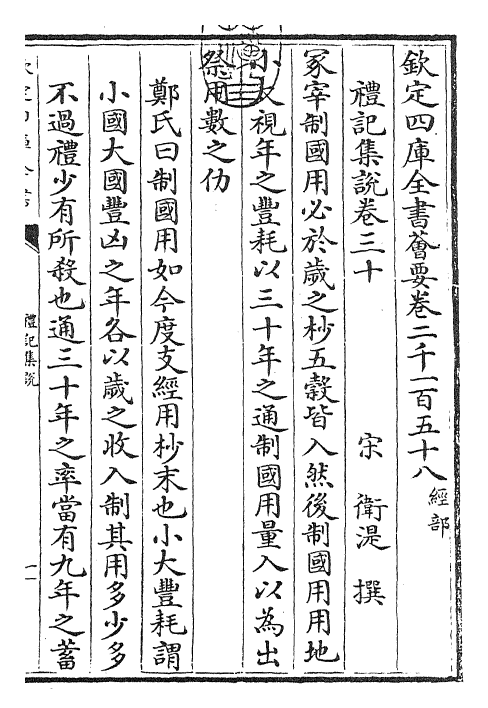 欽定四庫全書薈要卷二千一百五十八經部
禮記集説卷三十　　　宋　衛湜　撰
冢宰制國用必於歳之杪五穀皆入然後制國用用地
小大視年之豐耗以三十年之通制國用量入以為出
祭用數之仂
鄭氏曰制國用如今度支經用杪末也小大豐耗謂
小國大國豐凶之年各以歳之收入制其用多少多
不過禮少有所殺也通三十年之率當有九年之蓄
禮記集説